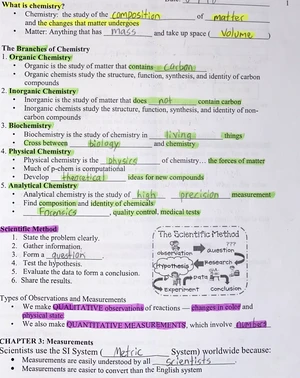 1
What is chemistry?
• Chemistry: the study of the composition of matter
and the changes that matter undergoes
• Matter: Anything that has mass and take up space ( Volume )
The Branches of Chemistry
1. Organic Chemistry
• Organic is the study of matter that contains carbon
• Organic chemists study the structure, function, synthesis, and identity of carbon
compounds
2. Inorganic Chemistry
• Inorganic is the study of matter that does not contain carbon
• Inorganic chemists study the structure, function, synthesis, and identity of non-
carbon compounds
3. Biochemistry
• Biochemistry is the study of chemistry in living things
• Cross between biology and chemistry
4. Physical Chemistry
• Physical chemistry is the physics of chemistry… the forces of matter
• Much of p-chem is computational
• Develop theoretical ideas for new compounds
5. Analytical Chemistry
• Analytical chemistry is the study of high precision measurement
• Find composition and identity of chemicals
• Forensics, quality control, medical tests
Scientific Method
1. State the problem clearly.
2. Gather information.
3. Form a question
4. Test the hypothesis.
5. Evaluate the data to form a conclusion.
6. Share the results.
The Scientific Method
???
observation
question
Hypothesis
Research
DATA
Experiment
Conclusion
Types of Observations and Measurements
• We make QUALITATIVE observations of reactions — changes in color and
physical state.
• We also make QUANTITATIVE MEASUREMENTS, which involve numbers
CHAPTER 3: Measurements
Scientists use the SI System ( Metric System) worldwide because:
• Measurements are easily understood by all scientists
• Measurements are easier to convert than the English system